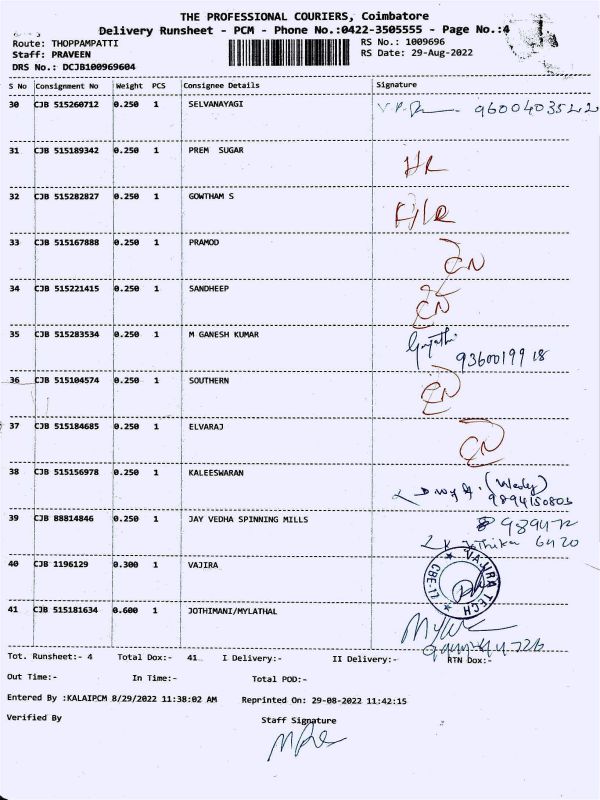 THE PROFESSIONAL COURIERS, Coimbatore
Delivery Runsheet - PCM - Phone No.:0422-3505555 - Page No.:4
Route: THOPPAMPATTI RS No.: 1009696
Staff: PRAVEEN RS Date: 29-Aug-2022
DRS No.: DCJB100969604
S No Consignment No Weight PCS Consignee Details Signature
30 CJB 515260712 0.250 1 SELVANAYAGI
31 CJB 515189342 0.250 1 PREM SUGAR
32 CJB 515282827 0.250 1 GOWTHAM S
33 CJB 515167888 0.250 1 PRAMOD
34 CJB 515221415 0.250 1 SANDHEEP
35 CJB 515283534 0.250 1 M GANESH KUMAR
9360019918
36 CJB 515104574 0.250 1 SOUTHERN
37 CJB 515184685 0.250 1 ELVARAJ
38 CJB 515156978 0.250 1 KALEESWARAN
39 CJB 88814846 0.250 1 JAY VEDHA SPINNING MILLS
40 CJB 1196129 0.300 1 VAJIRA
VAJIRA TECH CBE-17
41 CJB 515181634 0.600 1 JOTHIMANI/MYLATHAL
Tot. Runsheet:- 4 Total Dox:- 41 I Delivery:- II Delivery:- RTN Dox:-
Out Time:- In Time:- Total POD:-
Entered By :KALAIPCM 8/29/2022 11:38:02 AM Reprinted On: 29-08-2022 11:42:15
Verified By Staff Signature